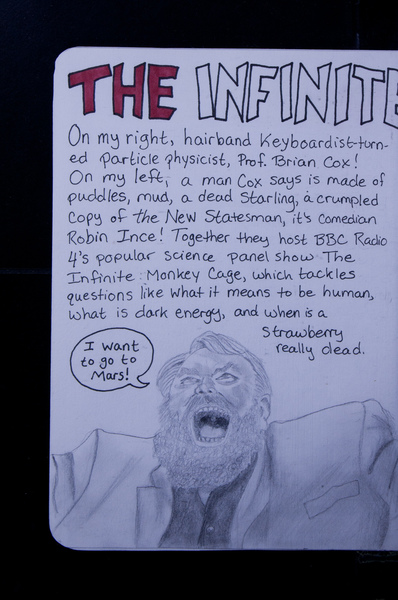 THE INFINITE
On my right, hairband Keyboardist-turn-
ed particle physicist, Prof. Brian Cox!
On my left, a man Cox says is made of
puddles, mud, a dead Starling, a crumpled
copy of the New Statesman, it's comedian
Robin Ince! Together they host BBC Radio
4's popular science panel show The
Infinite Monkey Cage, which tackles
questions like what it means to be human,
what is dark energy, and when is a
Strawberry
really dead.
I want
to go to
Mars!